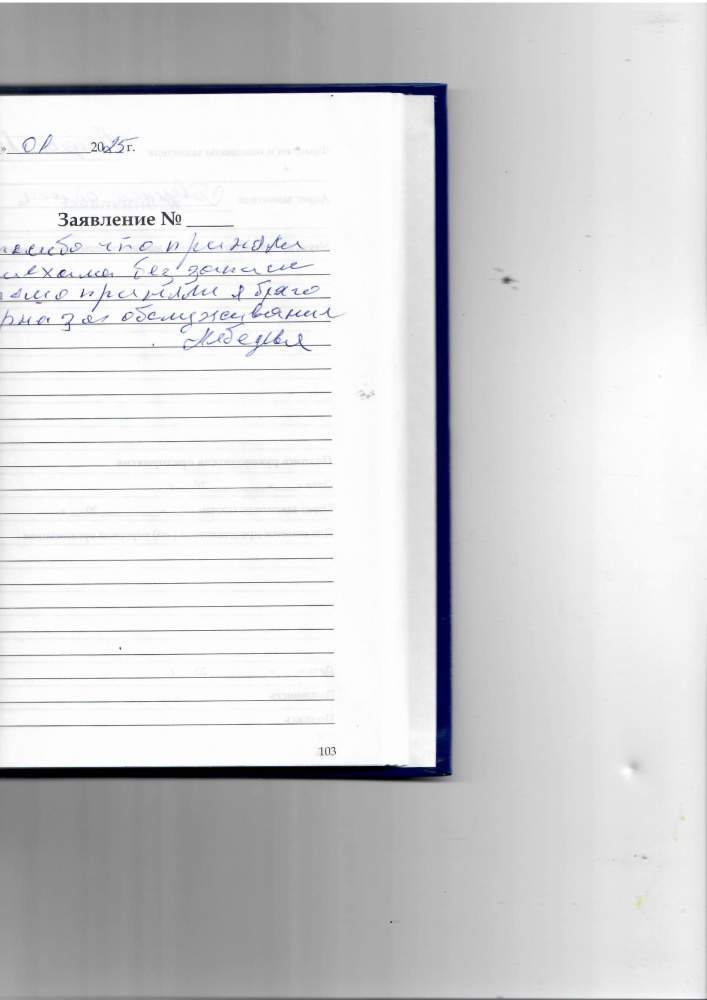 » 01 2025 г.
Заявление №
пасибо что приняли
иехала без записи
приняли я благо
рна за обслуживания
103